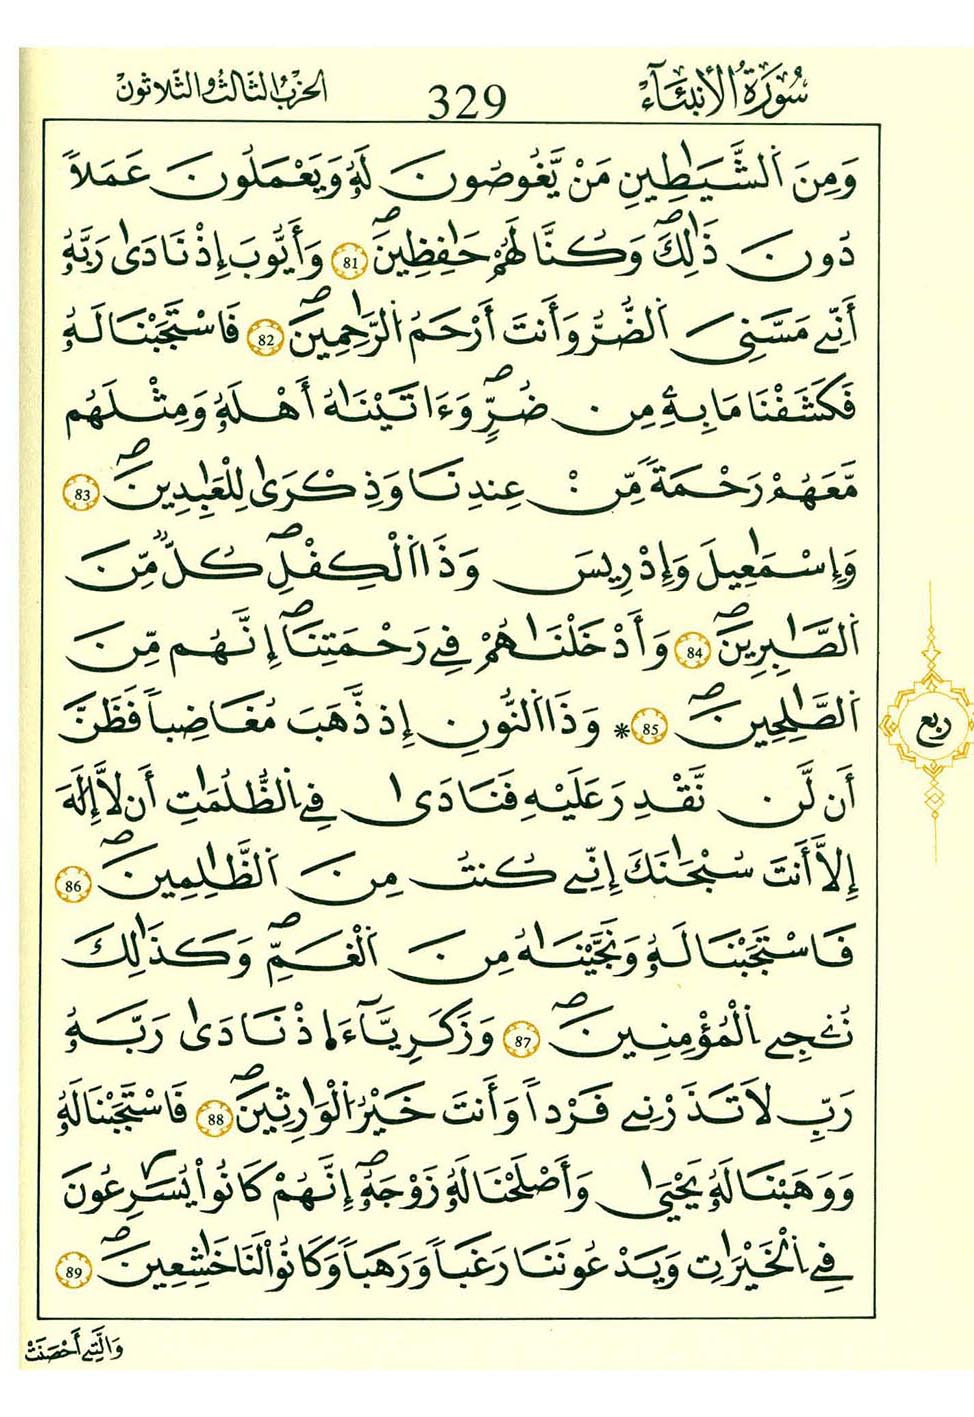 سُورَةُ الْأَنبِئَآءِ 329 الحزب الثالث والثلاثون
وَمِنَ اَ۬لشَّيَٰطِينِ مَنْ يَّغُوصُونَ لَهُۥ وَيَعْمَلُونَ عَمَلاٗ
دُونَ ذَٰلِكَۖ وَكُنَّا لَهُمْ حَٰفِظِينَۖ 81 وَأَيُّوبَ إِذْ نَادَىٰ رَبَّهُۥ
أَنِّے مَسَّنِيَ اَ۬لضُّرُّ وَأَنتَ أَرْحَمُ اُ۬لرَّٰحِمِينَۖ 82 فَاسْتَجَبْنَا لَهُۥ
فَكَشَفْنَا مَا بِهِۦ مِن ضُرّٖۖ وَءَاتَيْنَٰهُ أَهْلَهُۥ وَمِثْلَهُم
مَّعَهُمْ رَحْمَةٗ مِّنْ عِندِنَا وَذِكْرَىٰ لِلْعَٰبِدِينَۖ 83
وَإِسْمَٰعِيلَ وَإِدْرِيسَ وَذَا اَ۬لْكِفْلِۖ كُلّٞ مِّنَ
اَ۬لصَّٰبِرِينَۖ 84 وَأَدْخَلْنَٰهُمْ فِے رَحْمَتِنَاۖ إِنَّهُم مِّنَ
اَ۬لصَّٰلِحِينَۖ 85 * وَذَا اَ۬لنُّونِ إِذ ذَّهَبَ مُغَٰضِباٗ فَظَنَّ
ربع
أَن لَّن نَّقْدِرَ عَلَيْهِ فَنَادَىٰ فِے اِ۬لظُّلُمَٰتِ أَن لَّا إِلَٰهَ
إِلَّا أَنتَ سُبْحَٰنَكَ إِنِّے كُنتُ مِنَ اَ۬لظَّٰلِمِينَۖ 86
فَاسْتَجَبْنَا لَهُۥ وَنَجَّيْنَٰهُ مِنَ اَ۬لْغَمِّۖ وَكَذَٰلِكَ
نُۨجِے اِ۬لْمُؤْمِنِينَۖ 87 وَزَكَرِيَّآءَ ا۪ذْ نَادَىٰ رَبَّهُۥ
رَبِّ لَا تَذَرْنِے فَرْداٗ وَأَنتَ خَيْرُ اُ۬لْوَٰرِثِينَۖ 88 فَاسْتَجَبْنَا لَهُۥ
وَوَهَبْنَا لَهُۥ يَحْيَىٰ وَأَصْلَحْنَا لَهُۥ زَوْجَهُۥۖ إِنَّهُمْ كَانُواْ يُسَٰرِعُونَ
فِے اِ۬لْخَيْرَٰتِ وَيَدْعُونَنَا رَغَباٗ وَرَهَباٗ وَكَانُواْ لَنَا خَٰشِعِينَۖ 89
وَالَّتِے أَحْصَنَتْ